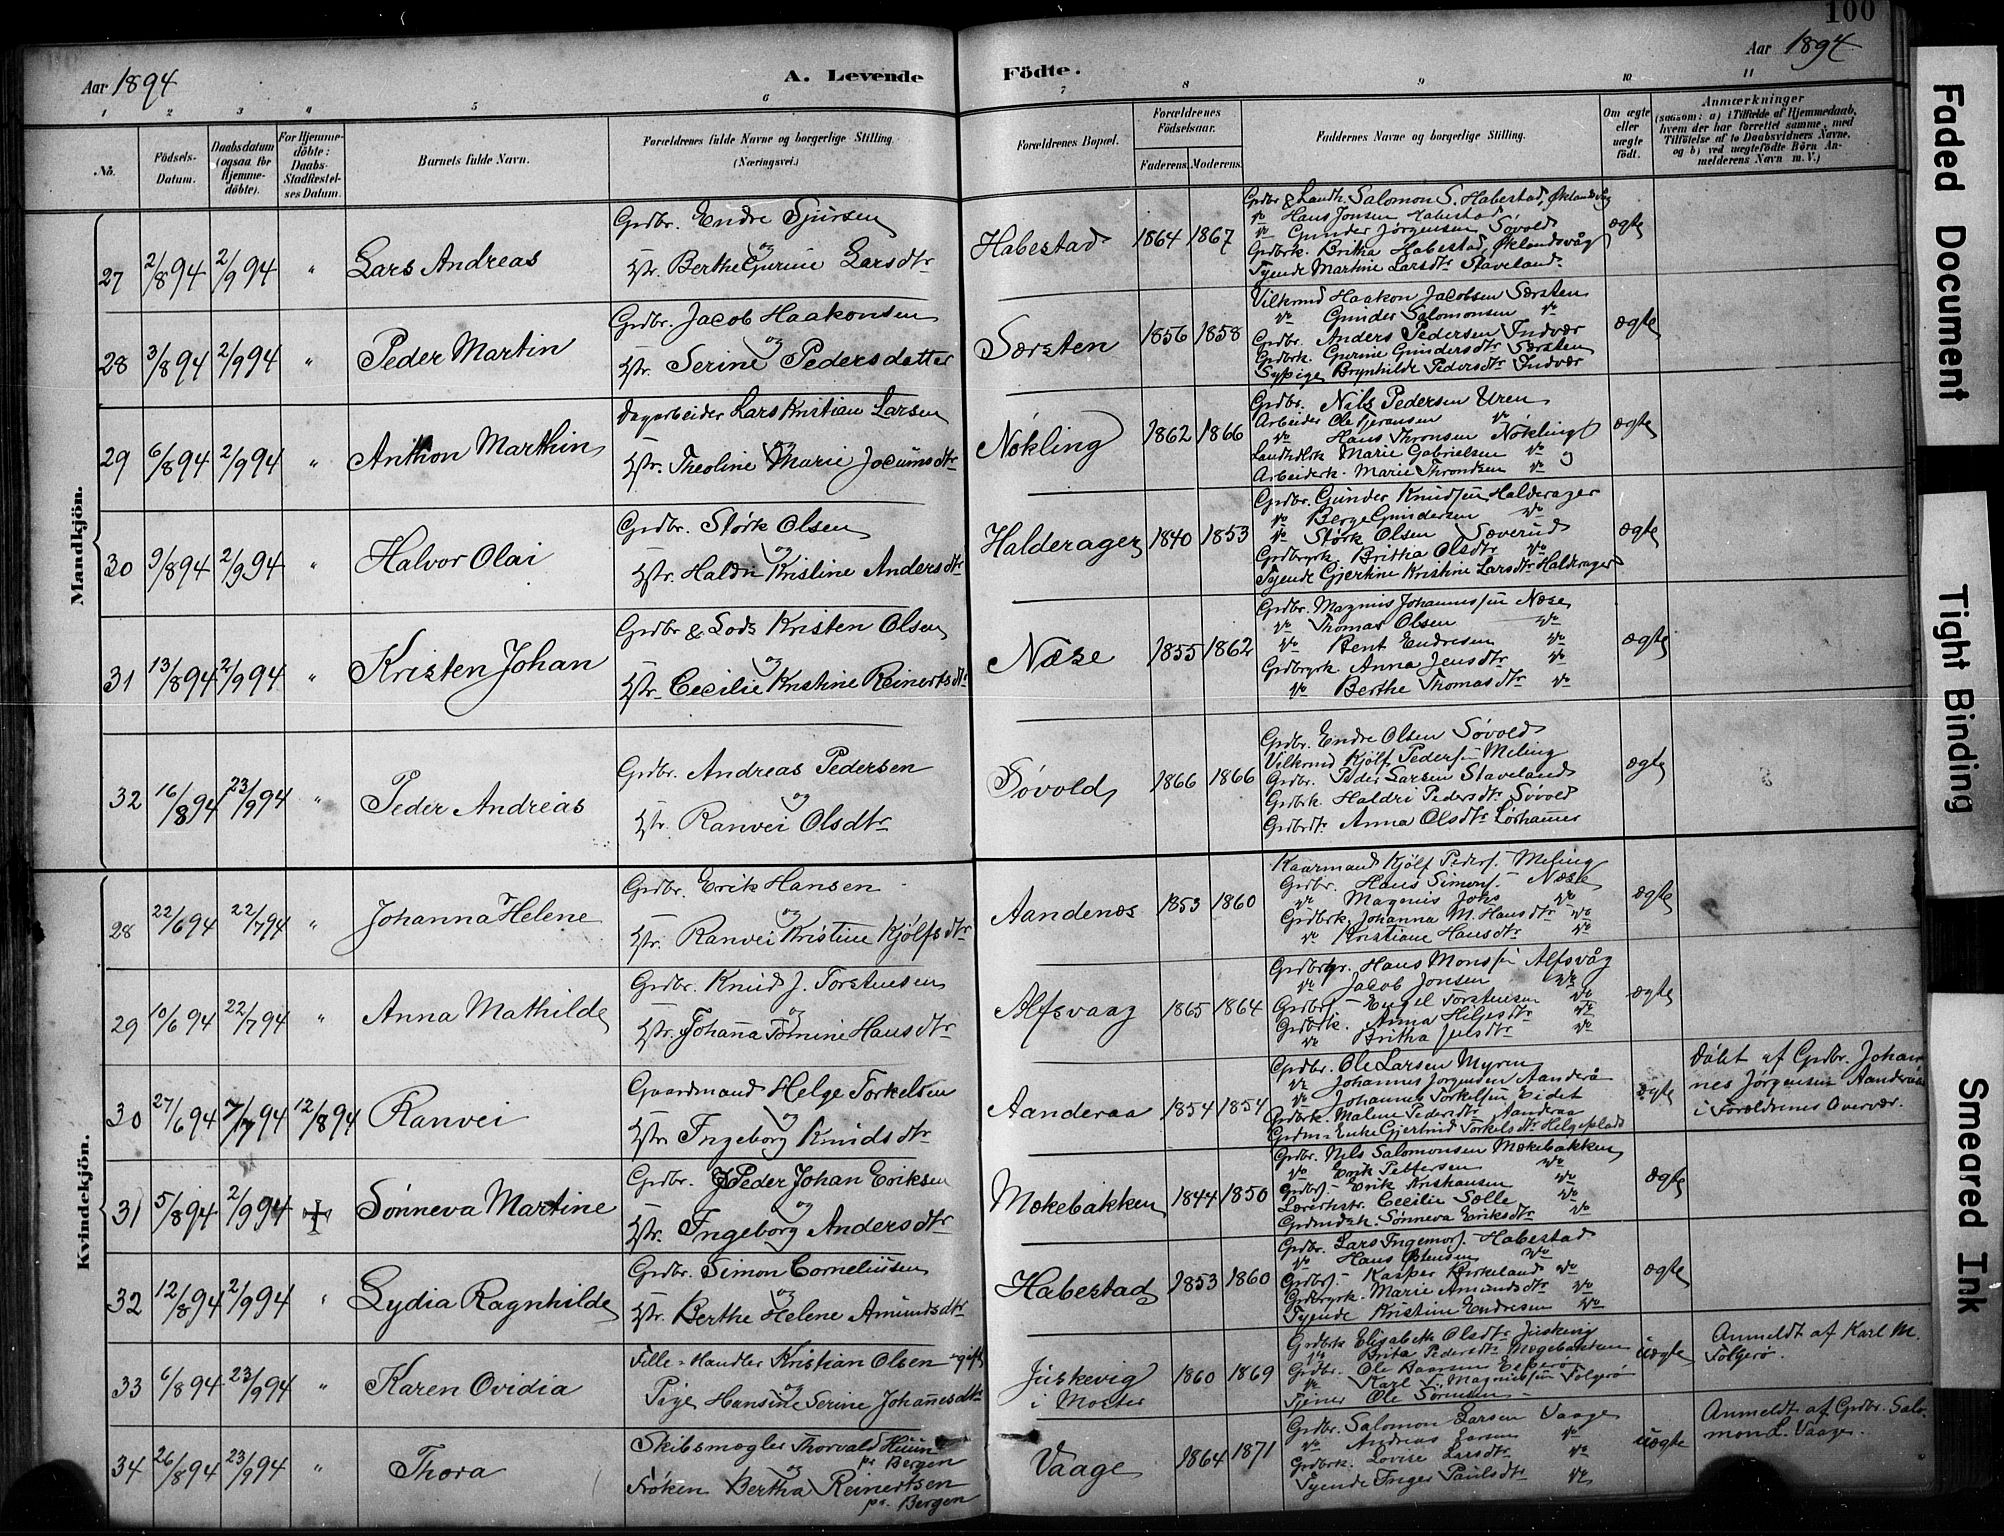 100
Aar 1894
A. Levende
Födte.
Aar 1894
1 2 3 4 5 6 7 8 9 10 11
No.
Födsels-
Datum.
Daabsdatum
(ogsaa for
Hjemme-
döbte).
For Hjemme-
döbte:
Daabs-
Stadfæstel-
ses Datum.
Barnets fulde Navn.
Forældrenes fulde Navne og borgerlige Stilling.
(Næringsvei.)
Forældrenes Bopæl.
Forældrenes
Födselsaar.
Faderens.
Moderens.
Faddernes Navne og borgerlige Stilling.
Om ægte
eller
uægte
födt.
Anmærkninger
(saasom: a) i Tilfælde af Hjemmedaab,
hvem der har forrettet samme, med
Tilföielse af to Daabsvidners Navne,
og b) ved uægtefödte Börn An-
melderens Navn m. V.)
Mandkjön.
27 2/8 94 2/9 94 " Lars Andreas
Grdbr. Endre Sjursen
og
Hstr. Berthe Gurine Larsdtr
Habestad 1864 1867
Grdbr & Landh. Salomon S. Habestad, Øklandsvåg
do Hans Jonsen Habestad
do Gunder Jørgensen Søvold
Grdbrk. Britha Habestad, Øklandsvåg
Tyende Martine Larsdtr Staveland
ægte
28 3/8 94 2/9 94 " Peder Martin
Grdbr. Jacob Haakonsen
og
Hstr. Serine Pedersdatter
Særsten 1856 1858
Vilkmd Haakon Jacobsen Særsten
do Gunder Salomonsen do
Grdbr. Anders Pedersen Indvær
Grdbrk. Gurine Gundersdtr Særsten
Sypige Brynhilde Pedersdtr Indvær
ægte
29 6/8 94 2/9 94 " Anthon Marthin
Dagarbeider Lars Kristian Larsen
og
Hstr. Theoline Marie Jocumsdtr
Nøkling 1862 1866
Grdbr. Nils Pedersen Uren
Arbeider Ole do
do Hans Thronsen Nøkling
Landhdlrk Marie Gabrielsen do
Arbeiderk. Marie Throndsen do
ægte
30 9/8 94 2/9 94 " Halvor Olai
Grdbr. Størk Olsen
og
Hstr. Haldri Kristine Andersdtr
Halderager 1840 1853
Grdbr. Gunder Knudsen Halderager
do Berge Gundersen do
do Størk Olsen Sæverud
Grdbryrk. Britha Olsdtr do
Tyende Gjertine Kristine Larsdtr Halderager
ægte
31 13/8 94 2/9 94 " Kristen Johan
Grdbr & Lods Kristen Olsen
og
Hstr. Cecilie Kristine Reinertsdtr
Næse 1855 1862
Grdbr. Magnus Johannessen Næse
do Thomas Olsen do
do Bent Endresen do
Grdbryrk. Anna Jensdtr do
do Berthe Thomasdtr do
ægte
32 16/8 94 23/9 94 " Peder Andreas
Grdbr. Andreas Pedersen
og
Hstr. Ranvei Olsdtr
Søvold 1866 1866
Grdbr. Endre Olsen Søvold
Vilkmd Kjølf Peders. Meling
Grdbr. Peder Larsen Staveland
Grdbrk Haldri Pedersdtr Søvold
Grdbrdtr Anna Olsdtr Lørhammer
ægte
Kvindekjön.
28 22/6 94 22/7 94 " Johanna Helene
Grdbr. Erik Hansen
og
Hstr. Ranvei Kristine Kjølfsdtr
Aandenæs 1853 1860
Kaarmand Kjølf Peders. Meling
Grdbr. Hans Simons. Næse
do Magnus Johs do
Grdbrk. Johanna M. Hansdtr do
do Kristiane Hansdtr do
ægte
29 10/6 94 22/7 94 " Anna Mathilde
Grdbr. Knud J. Torstensen
og
Hstr. Johana Tomine Hansdtr
Alfsvaag 1865 1864
Hans Monssen Alfsvåg
do Jacob Jonsen do
Grdbrs. Engel Torstensen do
Grdbrk. Anna Hilgesdtr do
do Britha do
ægte
30 27/6 94 7/7 94 12/8 94 Ranvei
Gaardmand Helge Torkelsen
og
Hstr Ingeborg Knudsdtr
Aanderaa 1854 1854
Grdbr. Ole Larsen Myren
do Johannes Jørgensen Aanderå
do Johannes Torkelsen Eidet
Grdbrk. Malene Pedersdtr Aanderaa
Grdm. Enke Gjertrud Torkelsdtr Helgeplads
ægte
Døbt af Grdbr. Johan-
nes Jørgensen Aanderåa
i Forældrenes Overvær.
31 5/8 94 2/9 94 Sønneva Martine
Grdbr. Peder Johan Eriksen
og
Hstr. Ingeborg Andersdtr
Mækebakken 1844 1850
Grdbr. Nels Salomonsen Mækebakken
do Erik Pettersen do
Grdbrs. Erik Kristiansen do
Lærerhstr. Cecilie Sælle do
Sønneva Eriksdtr do
ægte
32 12/8 94 2/9 94 " Lydia Ragnhilde
Grdbr. Simon Corneliusen
og
Hstr. Berthe Helene Amundsdtr
Habestad 1853 1860
Grdbr. Lars Ingemors. Habestad
do Hans do
Grdbrs. Kasper Birkeland do
Grdbryrk. Marie Amundsdtr do
Tyende Kristine Endresen do
ægte
33 6/8 94 23/9 94 " Karen Ovidia
Fille-Handler Kristian Olsen ugift
og
Pige Hansine Serine Johannesdtr
Juskevig
i Moster 1860 1869
Grdbrk Elisabeth Olsdtr Juskevig
do Brita Pedersdtr Mægebakken
Grdbr. Ole Baarsen Espevær
do Karl T. Magnussen Folgerø
Tjener Ole Sørensen
uægte
Anmeldt af Karl M.
Folgerø.
34 26/8 94 23/9 94 " Thora
Skibsmægler Thorvald
pr Bergen
og
Frøken Bertha Reinertsen
pr. Bergen
Vaage 1864 1871
Grdbr. Salomon Larsen Vaage
do Andreas Larsen do
Grdbrk. Lovise Larsdtr do
Tyende Inger Paulsdtr do
uægte
Anmeldt af Grdbr. Salo-
mon L. Vaage.
Faded Document
Tight Binding
Smeared Ink